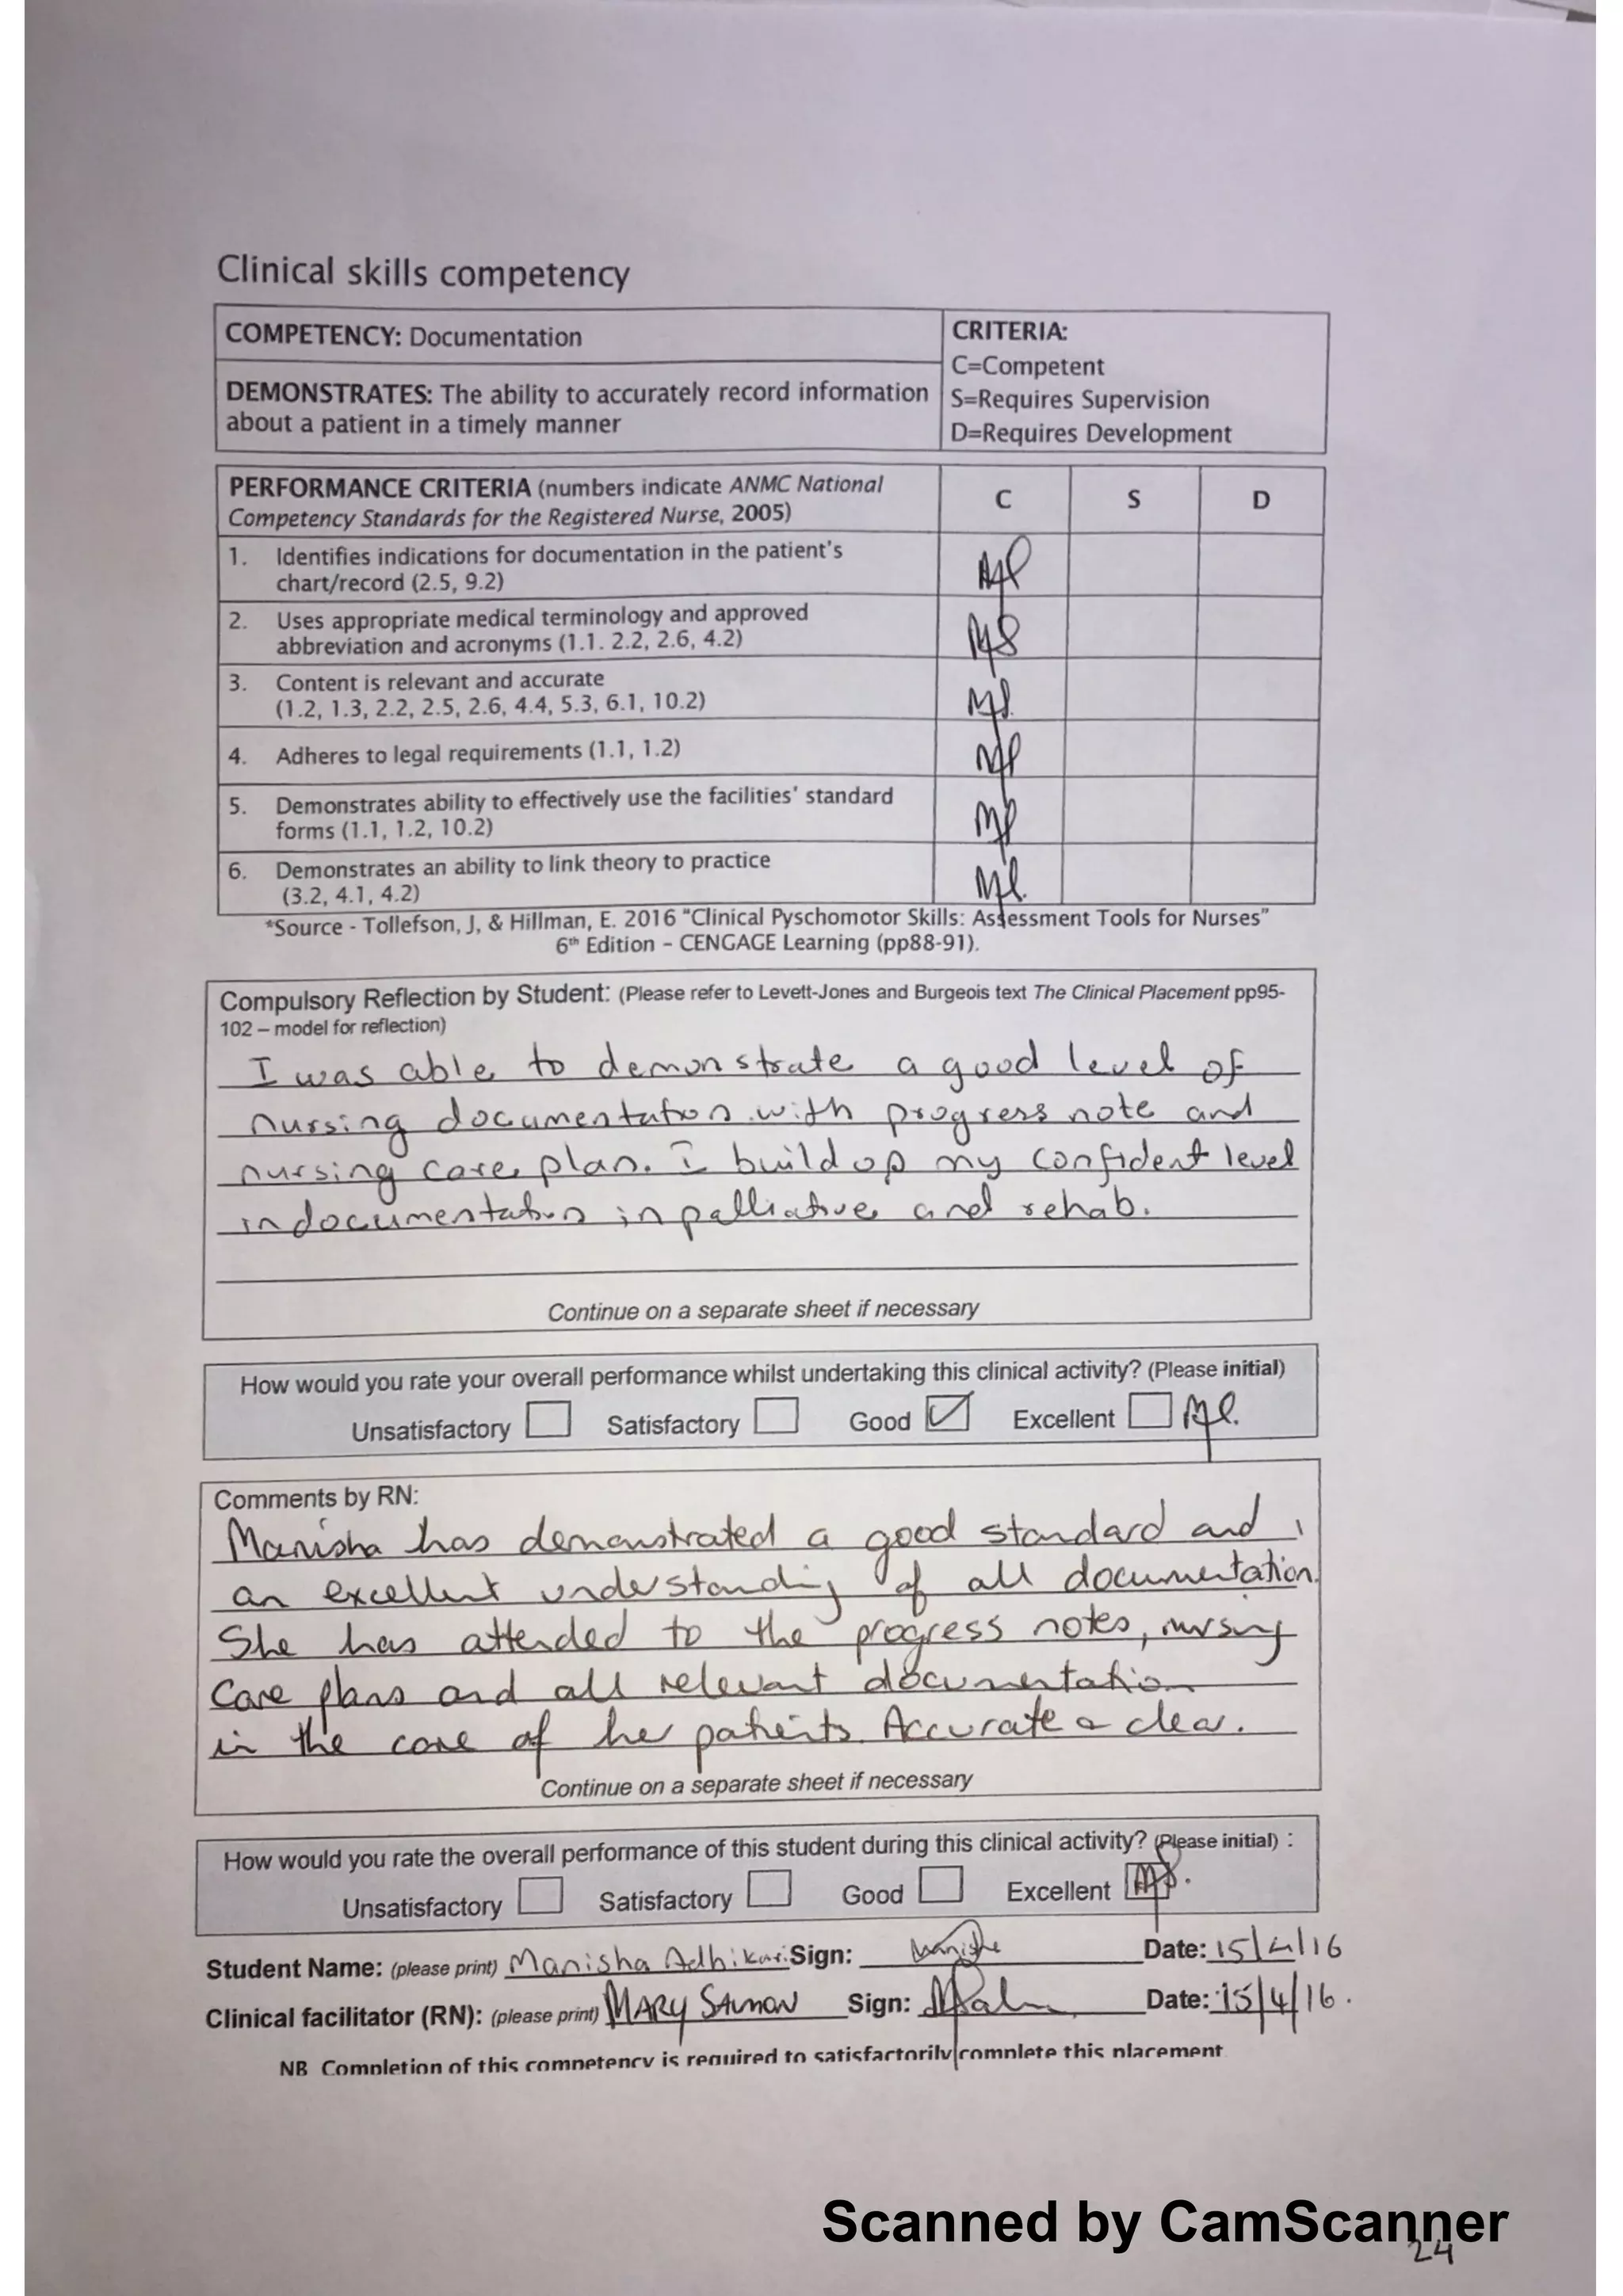 Clinical skills competency
COMPETENCY: Documentation
CRITERIA:
C=Competent
S=Requires Supervision
D=Requires Development
DEMONSTRATES: The ability to accurately record information
about a patient in a timely manner
PERFORMANCE CRITERIA (numbers indicate ANMC National
Competency Standards for the Registered Nurse, 2005)
C S D
1. Identifies indications for documentation in the patient's
chart/record (2.5, 9.2)
2. Uses appropriate medical terminology and approved
abbreviation and acronyms (1.1. 2.2, 2.6, 4.2)
3. Content is relevant and accurate
(1.2, 1.3, 2.2, 2.5, 2.6, 4.4, 5.3, 6.1, 10.2)
4. Adheres to legal requirements (1.1, 1.2)
5. Demonstrates ability to effectively use the facilities' standard
forms (1.1, 1.2, 10.2)
6. Demonstrates an ability to link theory to practice
(3.2, 4.1, 4.2)
*Source - Tollefson, J, & Hillman, E. 2016 "Clinical Pyschomotor Skills: Assessment Tools for Nurses"
6th Edition – CENGAGE Learning (pp88-91).
Compulsory Reflection by Student: (Please refer to Levett-Jones and Burgeois text The Clinical Placement pp95-
102 – model for reflection)
I was able to demonstrate a good level of
nursing documentation with progress note and
nursing care plan. I build up my confident level
in documentation in palliative and rehab.
Continue on a separate sheet if necessary
How would you rate your overall performance whilst undertaking this clinical activity? (Please initial)
Unsatisfactory Satisfactory Good Excellent
Comments by RN:
Manisha has demonstrated a good standard and
an excellent understanding of all documentation.
She has attended to the progress notes, nursing
care plans and all relevant documentation
in the care of her patients. Accurate & clear.
Continue on a separate sheet if necessary
How would you rate the overall performance of this student during this clinical activity? (Please initial) :
Unsatisfactory Satisfactory Good Excellent
Student Name: (please print) Manisha Adhikari Sign: Manisha Date: 15/4/16
Clinical facilitator (RN): (please print) MARY SALMON Sign: Date: 15/4/16.
NB Completion of this competency is required to satisfactorily complete this placement
Scanned by CamScanner
24